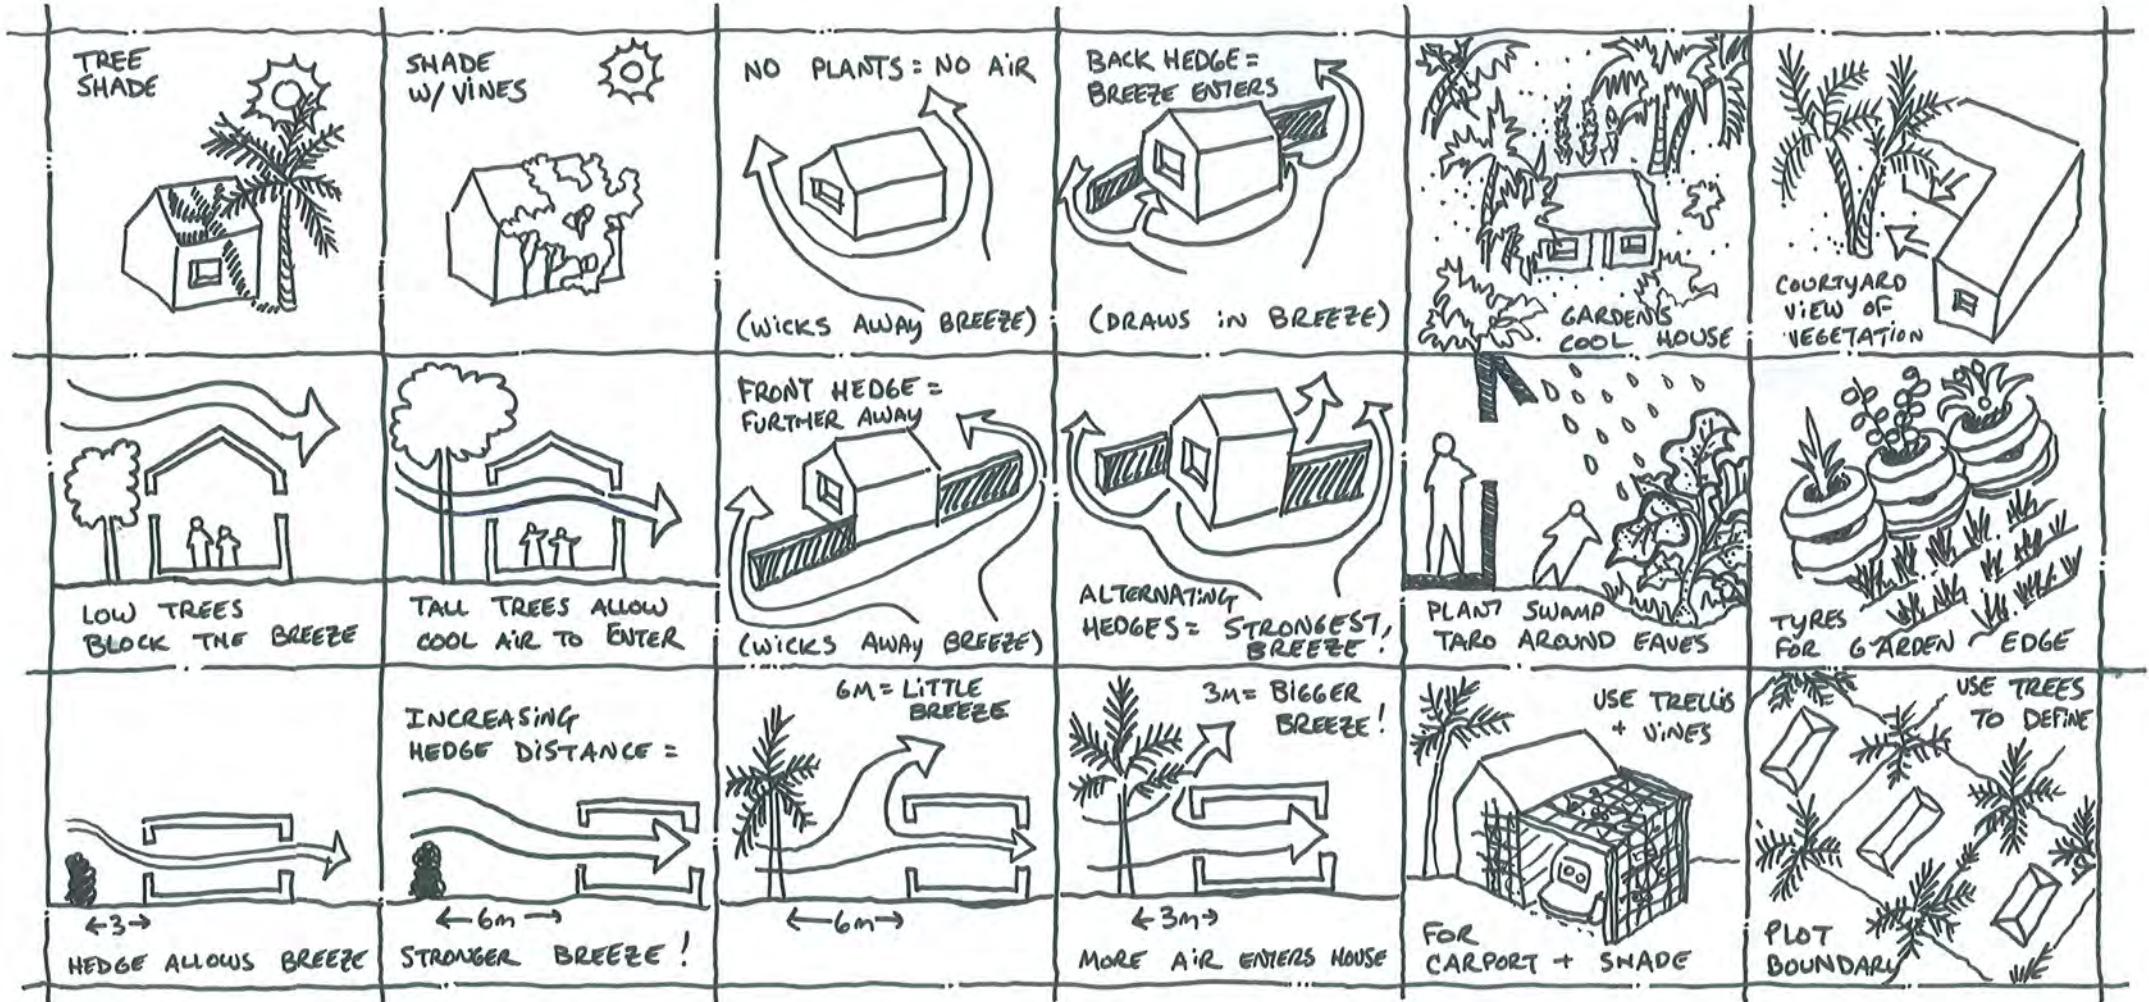 TREE
SHADE
SHADE
W/ VINES
NO PLANTS = NO AIR
(WICKS AWAY BREEZE)
BACK HEDGE =
BREEZE ENTERS
(DRAWS IN BREEZE)
GARDENS
COOL HOUSE
COURTYARD
VIEW OF
VEGETATION
LOW TREES
BLOCK THE BREEZE
TALL TREES ALLOW
COOL AIR TO ENTER
FRONT HEDGE =
FURTHER AWAY
(WICKS AWAY BREEZE)
ALTERNATING
HEDGES = STRONGEST
BREEZE!
PLANT SWAMP
TARO AROUND EAVES
TYRES
FOR GARDEN EDGE
←3→
HEDGE ALLOWS BREEZE
INCREASING
HEDGE DISTANCE =
←6m→
STRONGER BREEZE!
6M = LITTLE
BREEZE
←6m→
3M = BIGGER
BREEZE!
←3m→
MORE AIR ENTERS HOUSE
USE TRELLIS
+ VINES
FOR
CARPORT + SHADE
USE TREES
TO DEFINE
PLOT
BOUNDARY